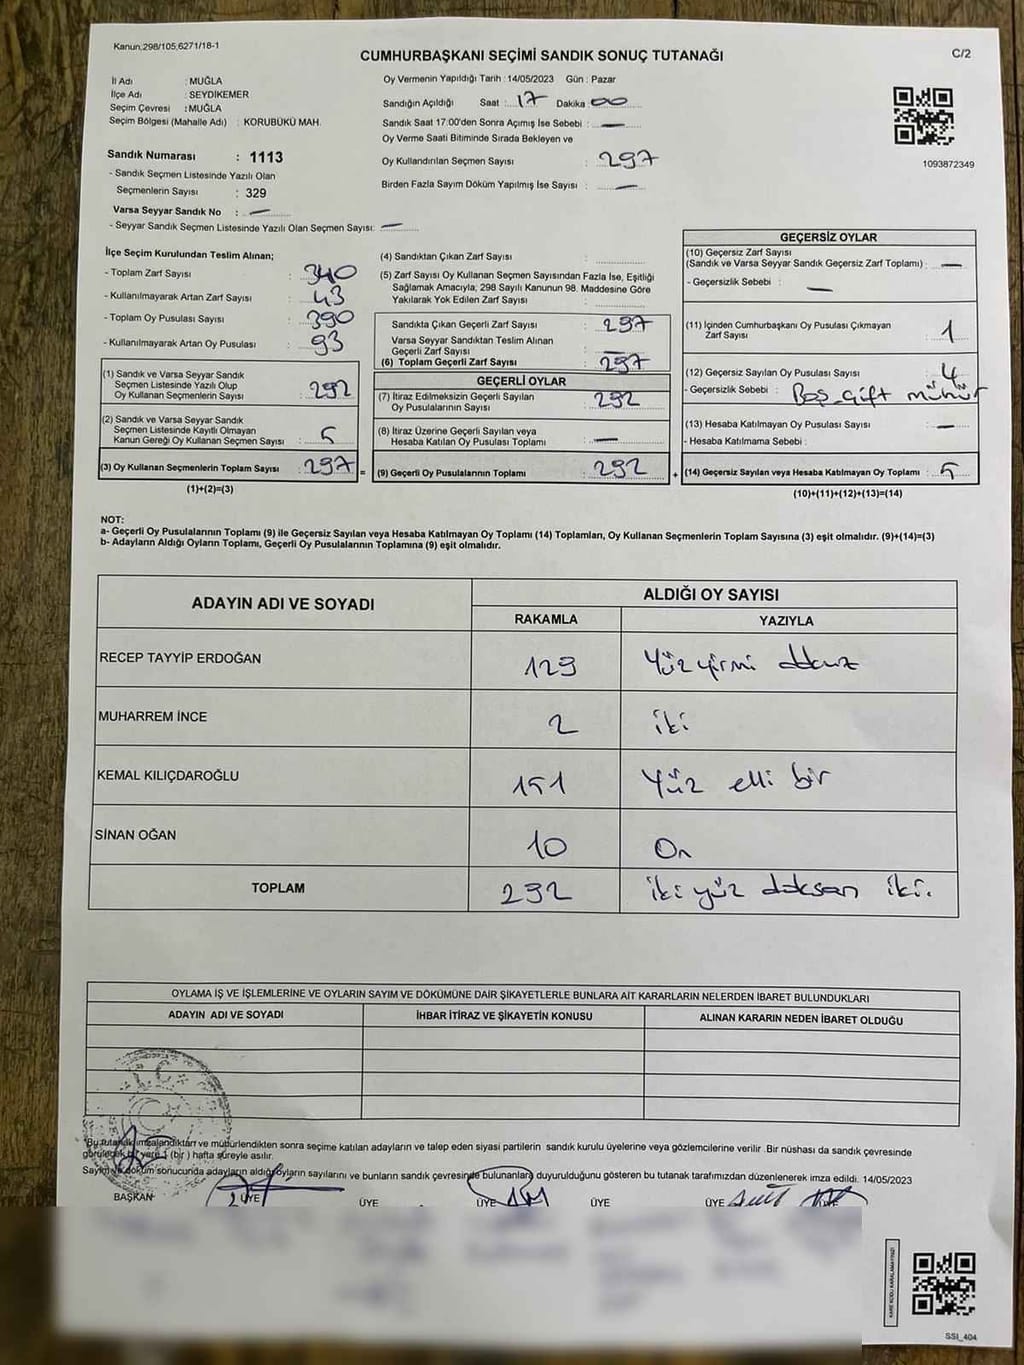 Kanun;298/105,6271/18-1
CUMHURBAŞKANI SEÇİMİ SANDIK SONUÇ TUTANAĞI
C/2
İl Adı : MUĞLA
İlçe Adı : SEYDİKEMER
Seçim Çevresi : MUĞLA
Seçim Bölgesi (Mahalle Adı) : KORUBÜKÜ MAH.
Sandık Numarası : 1113
- Sandık Seçmen Listesinde Yazılı Olan
Seçmenlerin Sayısı : 329
Varsa Seyyar Sandık No : —
- Seyyar Sandık Seçmen Listesinde Yazılı Olan Seçmen Sayısı: —
Oy Vermenin Yapıldığı Tarih : 14/05/2023 Gün : Pazar
Sandığın Açıldığı Saat : 17 Dakika : 00
Sandık Saat 17:00'den Sonra Açımış İse Sebebi : —
Oy Verme Saati Bitiminde Sırada Bekleyen ve
Oy Kullandırılan Seçmen Sayısı : 297
Birden Fazla Sayım Döküm Yapılmış İse Sayısı : —
1093872349
İlçe Seçim Kurulundan Teslim Alınan;
- Toplam Zarf Sayısı : 340
- Kullanılmayarak Artan Zarf Sayısı : 43
- Toplam Oy Pusulası Sayısı : 390
- Kullanılmayarak Artan Oy Pusulası : 93
(1) Sandık ve Varsa Seyyar Sandık
Seçmen Listesinde Yazılı Olup
Oy Kullanan Seçmenlerin Sayısı : 292
(2) Sandık ve Varsa Seyyar Sandık
Seçmen Listesinde Kayıtlı Olmayan
Kanun Gereği Oy Kullanan Seçmen Sayısı : 5
(3) Oy Kullanan Seçmenlerin Toplam Sayısı : 297
(1)+(2)=(3)
(4) Sandıktan Çıkan Zarf Sayısı :
(5) Zarf Sayısı Oy Kullanan Seçmen Sayısından Fazla İse, Eşitliği
Sağlamak Amacıyla; 298 Sayılı Kanunun 98. Maddesine Göre
Yakılarak Yok Edilen Zarf Sayısı :
Sandıkta Çıkan Geçerli Zarf Sayısı : 297
Varsa Seyyar Sandıktan Teslim Alınan
Geçerli Zarf Sayısı : —
(6) Toplam Geçerli Zarf Sayısı : 297
GEÇERLİ OYLAR
(7) İtiraz Edilmeksizin Geçerli Sayılan
Oy Pusulalarının Sayısı : 292
(8) İtiraz Üzerine Geçerli Sayılan veya
Hesaba Katılan Oy Pusulası Toplamı : —
= (9) Geçerli Oy Pusulalarının Toplamı : 292
GEÇERSİZ OYLAR
(10) Geçersiz Zarf Sayısı
(Sandık ve Varsa Seyyar Sandık Geçersiz Zarf Toplamı) : —
- Geçersizlik Sebebi : —
(11) İçinden Cumhurbaşkanı Oy Pusulası Çıkmayan
Zarf Sayısı : 1
(12) Geçersiz Sayılan Oy Pusulası Sayısı : 4
- Geçersizlik Sebebi : Boş_Çift mühür
(13) Hesaba Katılmayan Oy Pusulası Sayısı : —
- Hesaba Katılmama Sebebi :
+ (14) Geçersiz Sayılan veya Hesaba Katılmayan Oy Toplamı : 5
(10)+(11)+(12)+(13)=(14)
NOT:
a- Geçerli Oy Pusulalarının Toplamı (9) ile Geçersiz Sayılan veya Hesaba Katılmayan Oy Toplamı (14) Toplamları, Oy Kullanan Seçmenlerin Toplam Sayısına (3) eşit olmalıdır. (9)+(14)=(3)
b- Adayların Aldığı Oyların Toplamı, Geçerli Oy Pusulalarının Toplamına (9) eşit olmalıdır.
ADAYIN ADI VE SOYADI
ALDIĞI OY SAYISI
RAKAMLA YAZIYLA
RECEP TAYYİP ERDOĞAN 129 Yüz yirmi dokuz
MUHARREM İNCE 2 iki
KEMAL KILIÇDAROĞLU 151 Yüz elli bir
SİNAN OĞAN 10 On
TOPLAM 292 iki yüz doksan iki.
OYLAMA İŞ VE İŞLEMLERİNE VE OYLARIN SAYIM VE DÖKÜMÜNE DAİR ŞİKAYETLERLE BUNLARA AİT KARARLARIN NELERDEN İBARET BULUNDUKLARI
ADAYIN ADI VE SOYADI İHBAR İTİRAZ VE ŞİKAYETİN KONUSU ALINAN KARARIN NEDEN İBARET OLDUĞU
T.C.
*Bu tutanak imzalandıktan ve mühürlendikten sonra seçime katılan adayların ve talep eden siyasi partilerin sandık kurulu üyelerine veya gözlemcilerine verilir .Bir nüshası da sandık çevresinde
görülecek bir yere 1 (bir ) hafta süreyle asılır.
Sayım ve döküm sonucunda adayların aldığı oyların sayılarını ve bunların sandık çevresinde bulunanlara duyurulduğunu gösteren bu tutanak tarafımızdan düzenlenerek imza edildi. 14/05/2023
BAŞKAN ÜYE ÜYE ÜYE ÜYE ÜYE ÜYE
KARE KODU KARALAMAYINIZ!
SSİ_404